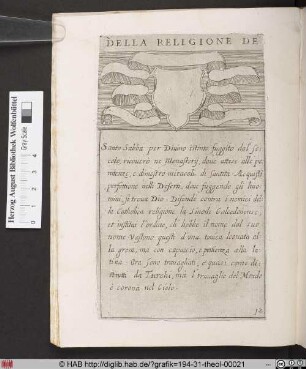 DELLA RELIGIONE DE
Santo Sabba per Diuino istinto fuggito dal se-
colo, ricouerò ne Monasterij, doue attese alle pe-
nitenze, e dimostrò miracoli di santità. Acquistò
perfettione nelli Deserti, doue fuggendo gli huo-
mini, si troua Dio. Difende contra i nemici del-
la Catholica religione la Sinodo Calcedonense,
et instituì l'ordine, ch'hebbe il nome dal suo
nome. Vestono questi d'una tonica leonata al-
la greca, ma con capuccio, e patienza alla la-
tina. Ora sono trauagliati, e quasi tutti de-
strutti da Turchi, ma i trauaglie del Mondo
è corona nel Cielo.
Herzog August Bibliothek Wolfenbüttel
© HAB http://diglib.hab.de/?grafik=194-31-theol-00021